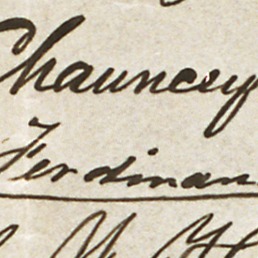 Chauncey
Ferdinan